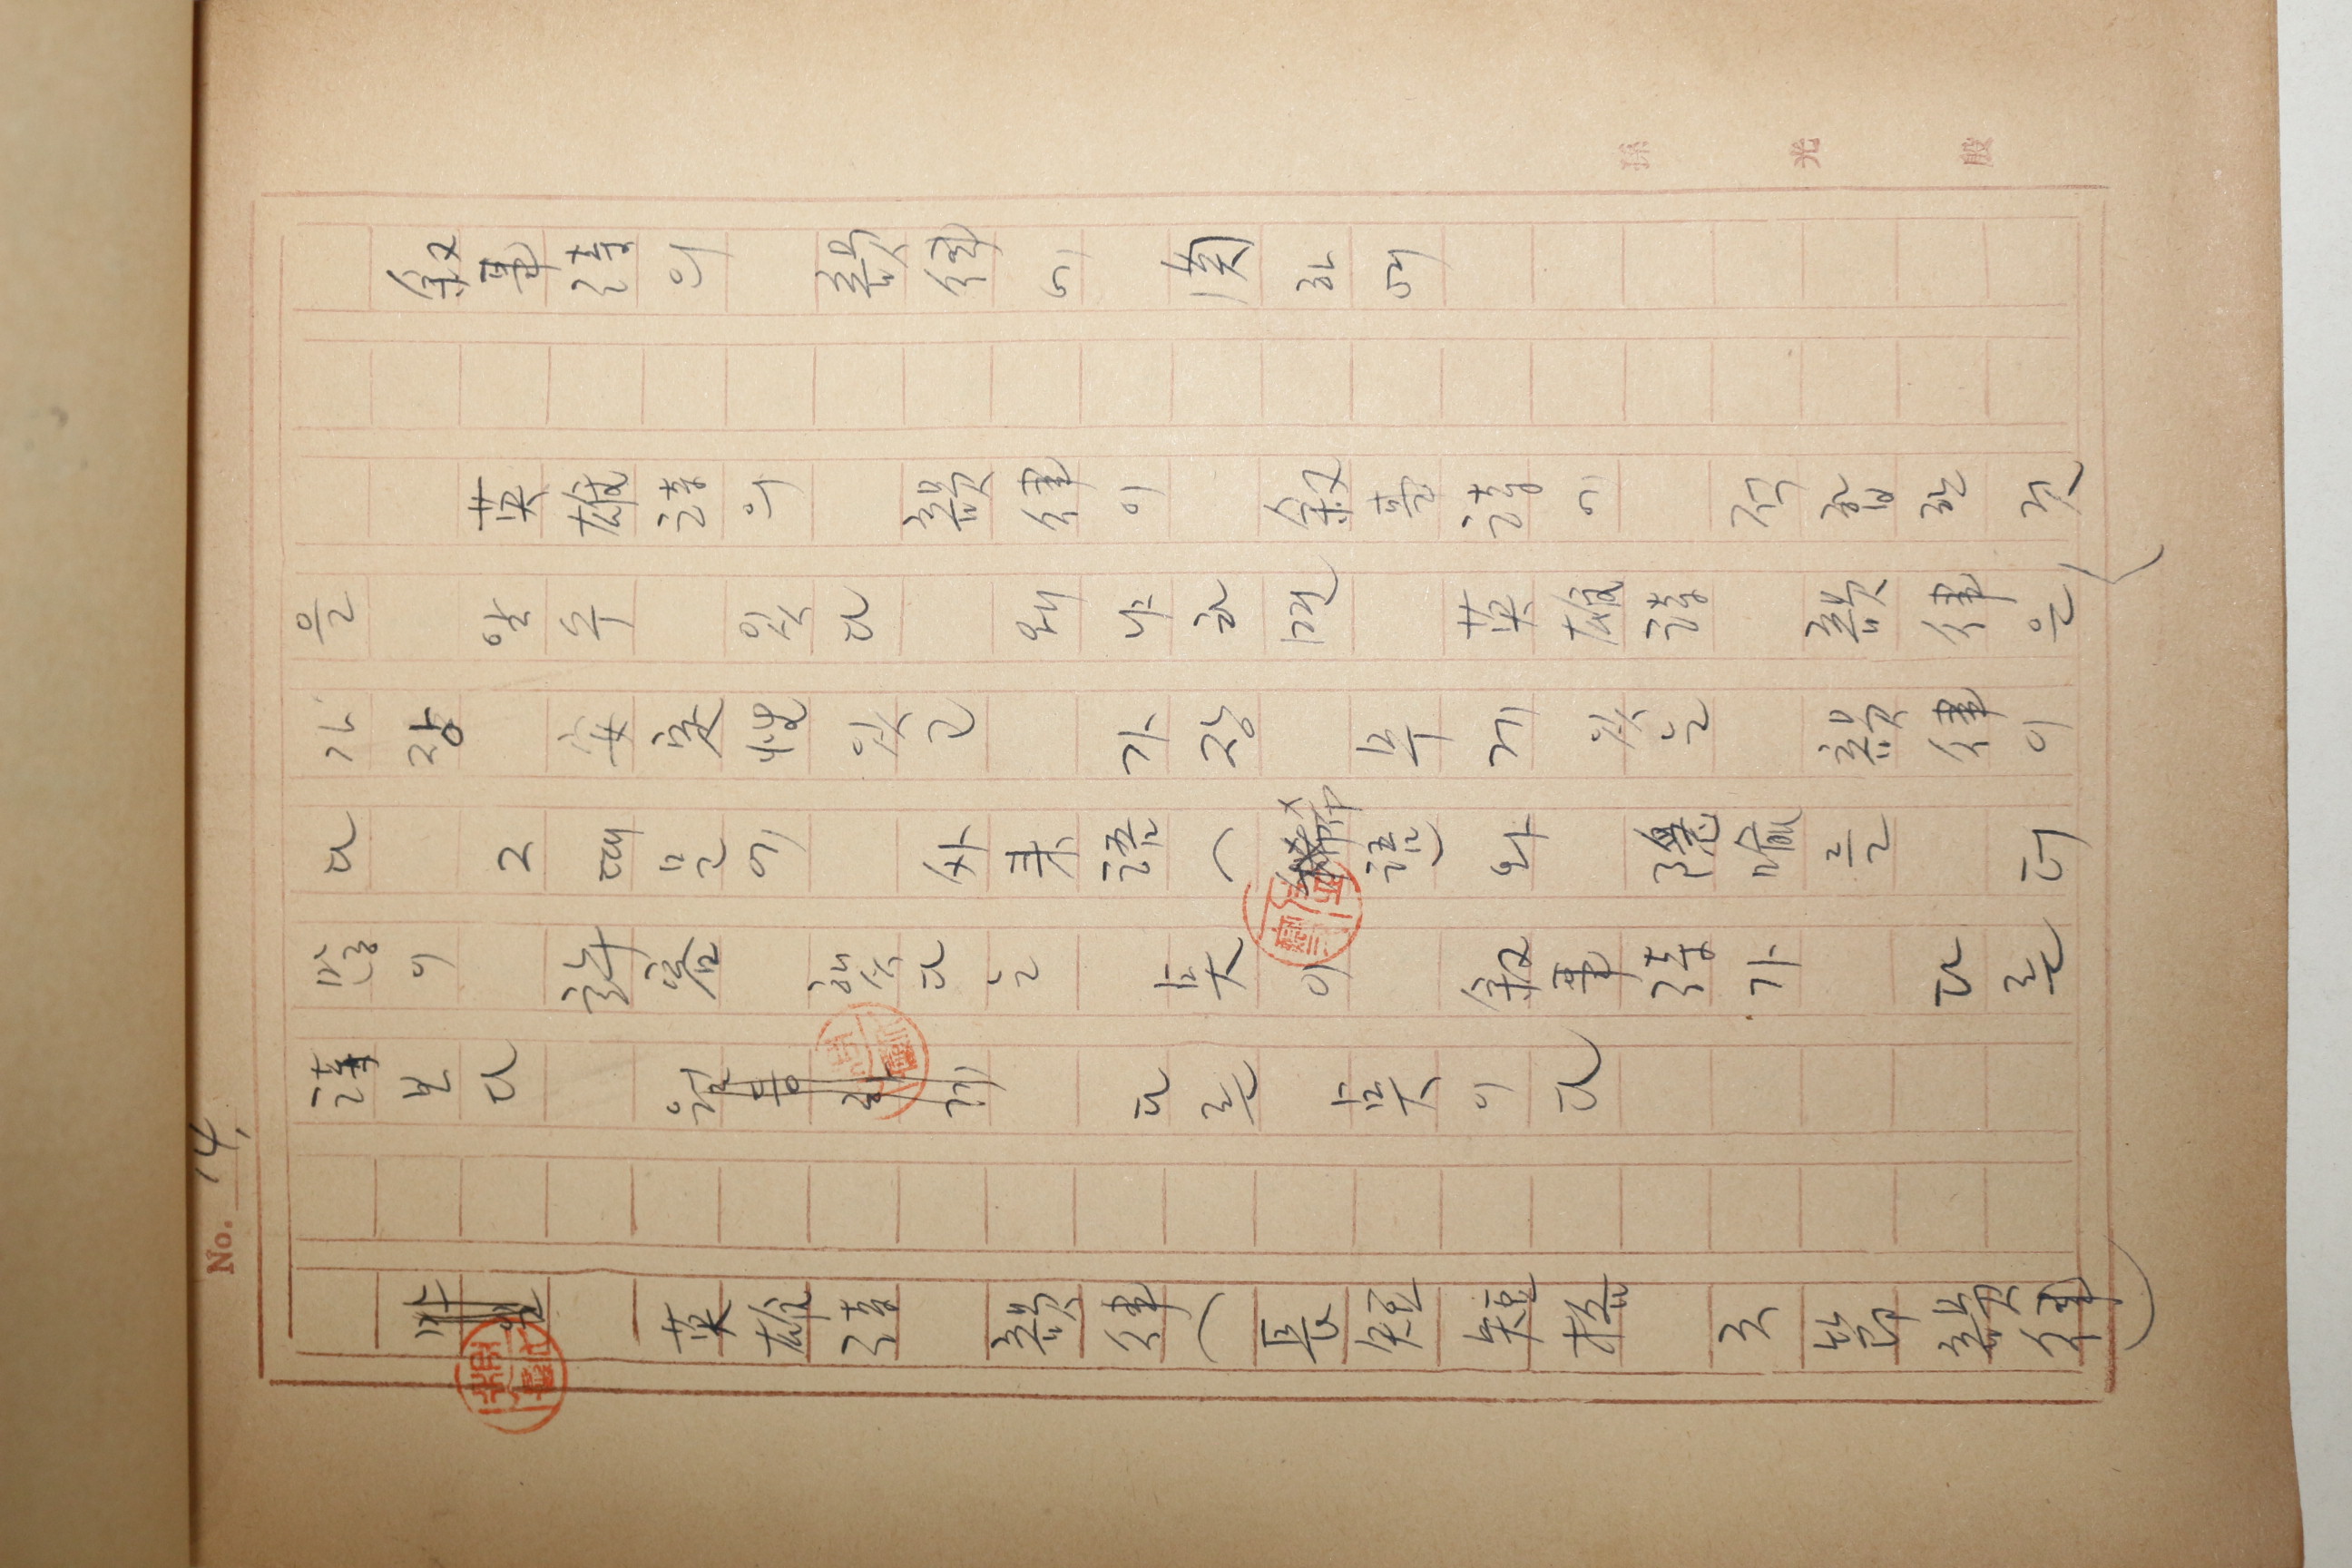 No. 14,
叙事詩의 韻律에 関하여
英雄詩의 韻律이 叙事詩에 적합한 것
을 알수 있다 왜냐하면 英雄詩 韻律은
가장 安定性 있고 가장 무게 있는 韻律이
다 그 때문에 外来語(希語)와 隠喩를 더
많이 許容 했다는 点이 叙事詩가 다른
詩보다 월등하게 다른 点이다
英雄詩 韻律(長短短格 六節韻律)
孫光殷